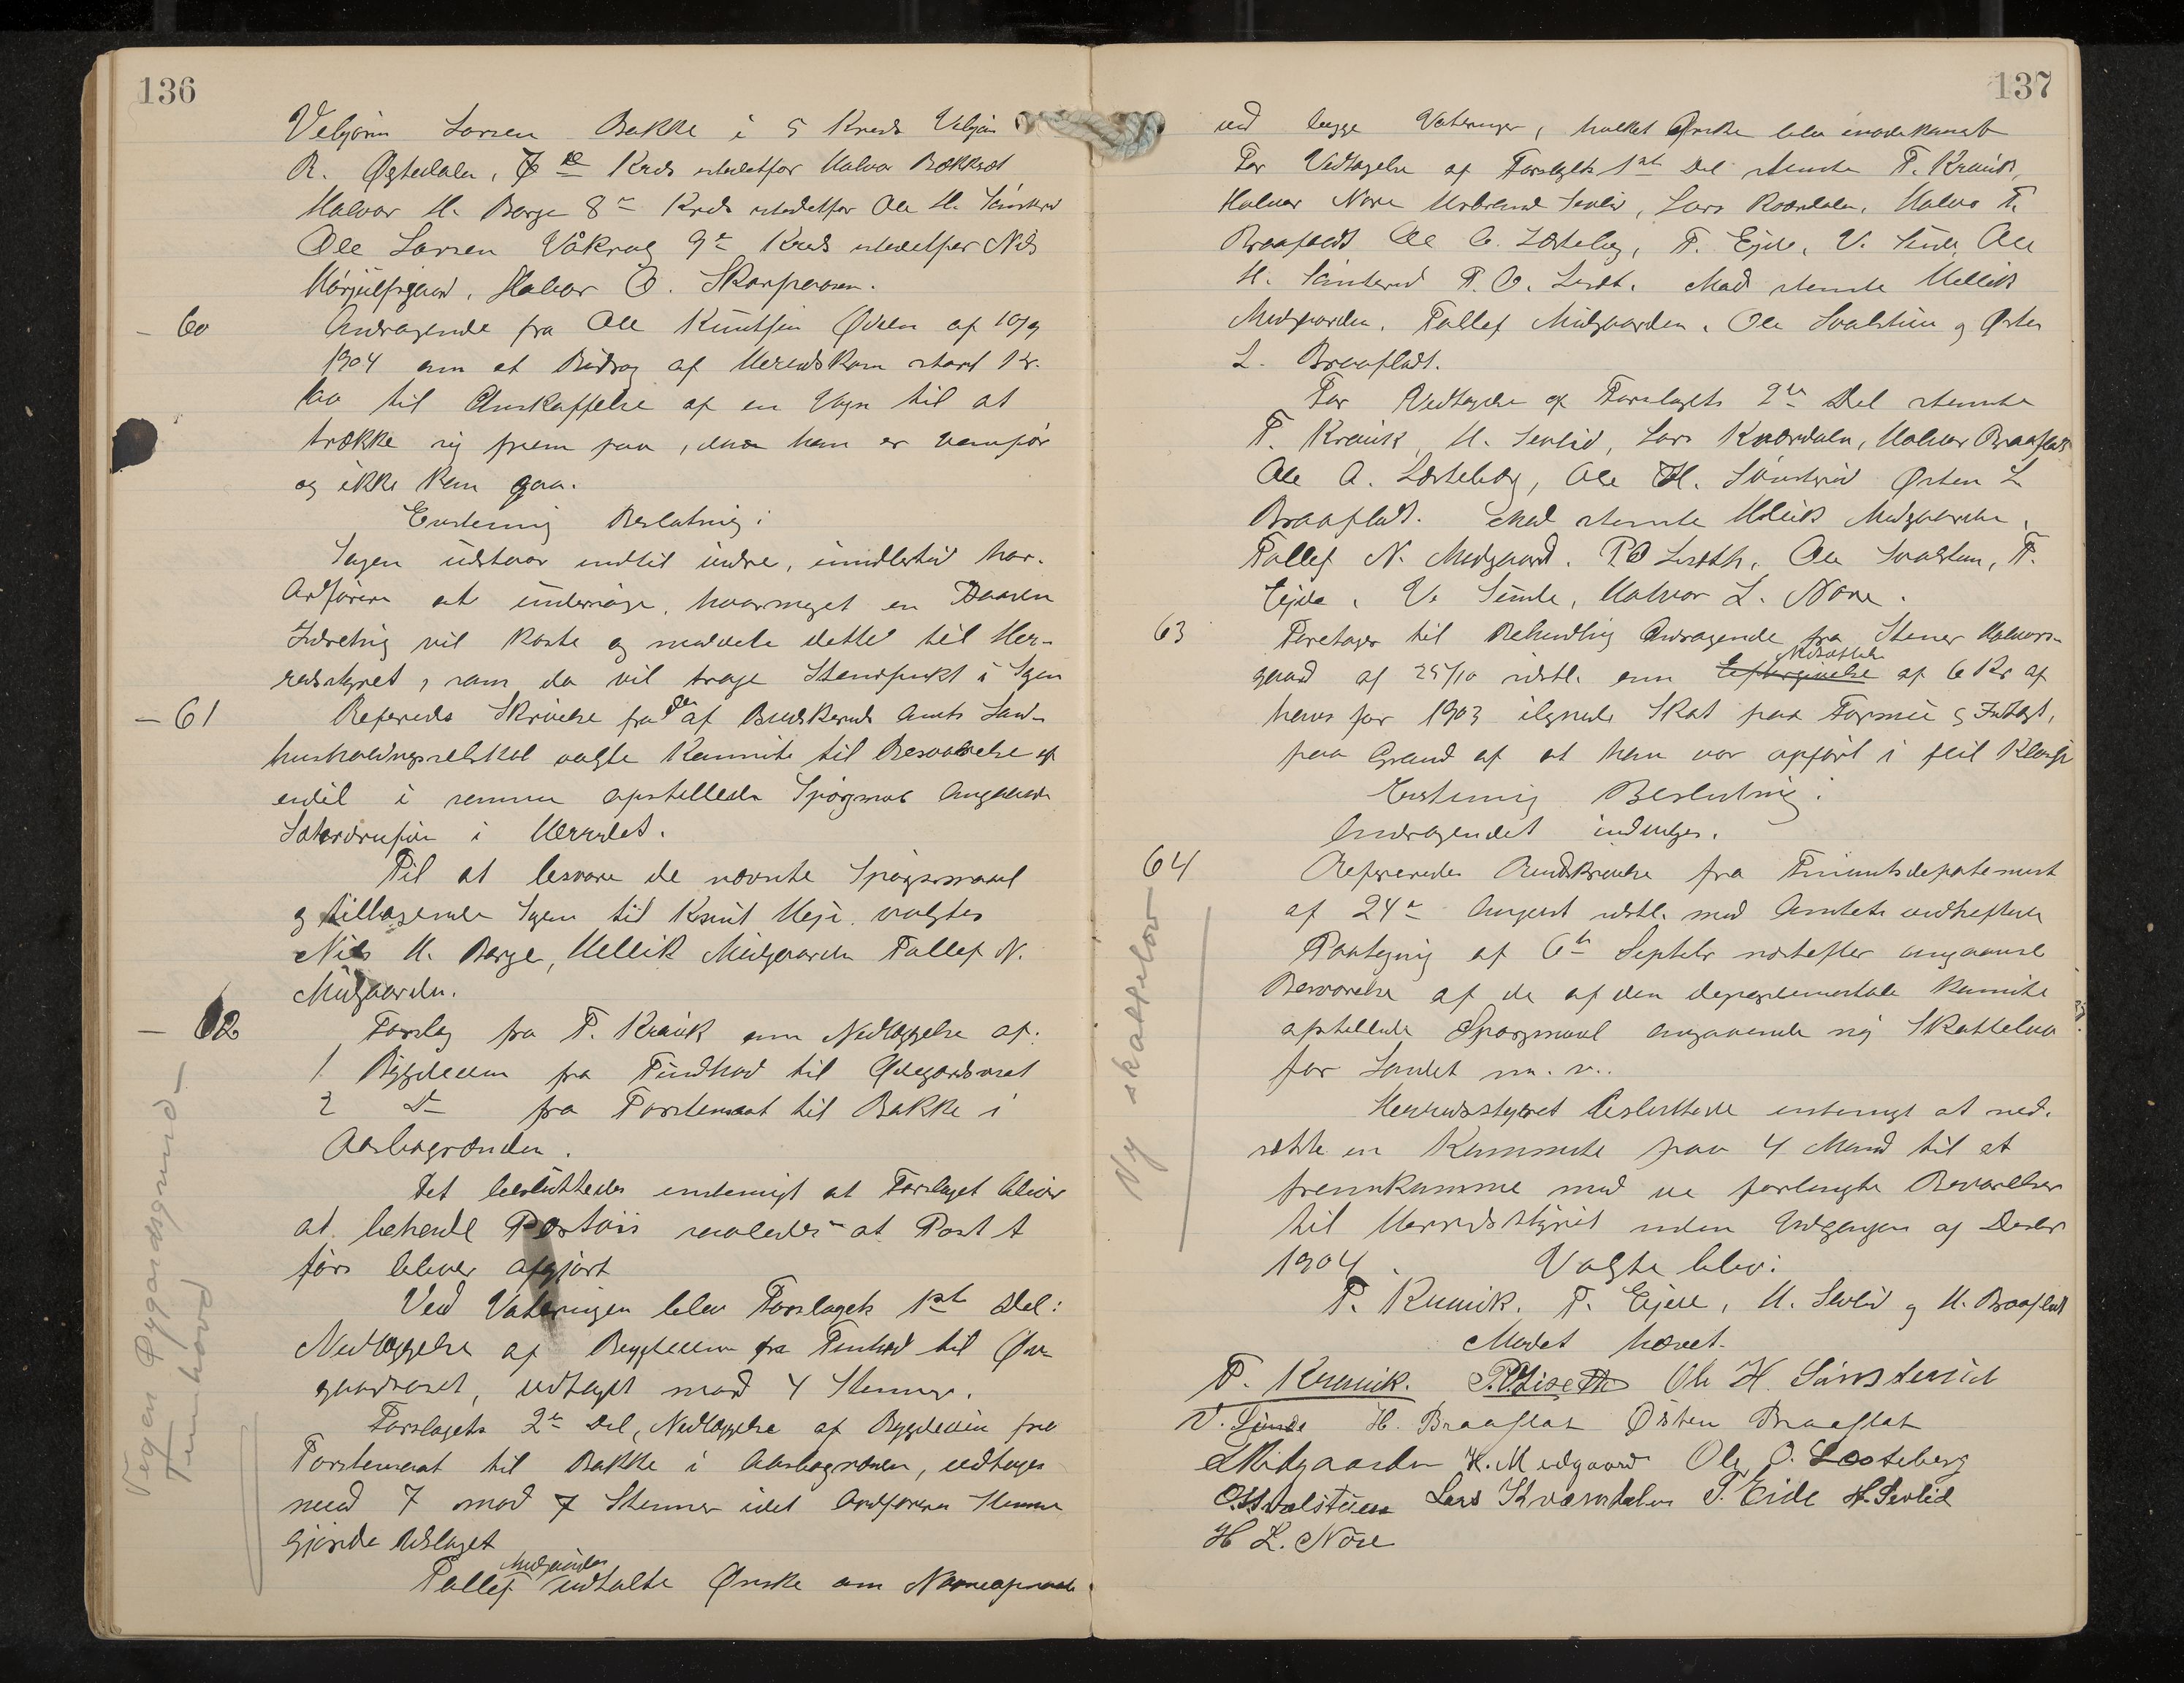 136
Vebjørn Larsen Bakke i 5 Kreds Vebjørn
R. Øgtedalen, 7de Kreds istedetfor Halvor
Halvor H. Berge 8de Kreds istedetfor Ole H. Simsterud
Ole Larsen Våkrag 9de Kreds istedetfor Nils
Hørjulfsgaard, Halvor O. Skarpaasen.
- 60 Andragende fra Ole Knutsen Ødeen af 10/9
1904 om et Bidrag af Heredskassen stort Kr.
til Anskaffelse af en Vogn til at
trække sig frem paa, da han er vanfør
og ikke kan gaa.
Enstemig Beslutning:
Sagen udstaar indtil videre, imidlertid har
Ordføreren at undersøge, hvormeget en saadan
Indretning vil koste og meddele dette til Her-
redsstyret, som da vil tage Standpunkt i Sagen
- 61 Refereredes Skrivelse fra den af Buskeruds Amts Land-
husholdningsselskab valgte Komite til Besvarelse af
endel i samme opstillede Spørgsmaal Angaaende
Sæterdriften i Herredet.
Til at besvare de nævnte Spørgsmaal
og tilbagesende Sagen til Knut Heje valgtes
Nils H. Berge, Hellik Midgaarden Tollef N.
Midgaarden.
- 62 Forslag fra T. Kravik om Nedlæggelse af:
1 Bygdeveien fra Tindhod til Ødegardsmot
2 Do fra Torstemoat til Bakke i
Aasbøgrænden.
Det besluttedes enstemigt at Forslaget bliver
at behandle Postvis saaledes at Post 1
førs bliver afgjørt
Ved Voteringen blev Forslagets 1st Del:
Nedlæggelse af Bygdeveien fra Tinhod til Øde-
gaardsmot, vedtaget mod 4 Stemmer.
Forslagets 2den Del, Nedlæggelse af Bygdeveien fra
Torstemoat til Bakke i Aasbøgrænden, vedtages
med 7 mod 7 Stemmer idet Ordførerens Stemme
gjorde Udslaget
Tollef Midgaarden udtalte Ønske om Navneopraab
Vegen Øygardsgrend -
Tunhovd
137
ved begge Voteringer, hvilket Ønske blev imødekommet
For Vedtagelse af Forslagets 1ste Del stemte T. Kravik,
Halvor Nore Sevlid, Lars Kværndalen, Halvor T.
Braafladt Ole O. Løsteberg, T. Ejde, V. Simle, Ole
H. Simsterud P. O. Liseth. Mod stemte Hellik
Midgaarden, Tollef Midgaarden, Ole Svalstuen og Østen
L. Braafladt.
For Vedtagelse af Forslagets 2den Del stemte
T. Kravik, H. Sevlid, Lars Kværndalen, Halvor Braafladt
Ole O. Løsteberg, Ole H. Simsterud Østen L
Braafladt. Mod stemte Hellik Midgaarden,
Tollef N. Midgaard, P O Liseth, Ole Svalstuen, T.
Eijde, V. Simle, Halvor L. Nore.
63 Foretages til Behandling Andragende fra Stener Halvors-
gaard af 25/10 sidstl. om Eftergivelse Nedsættelse af 6 Kr af
hans for 1903 ilignede Skat paa Formue og Indtægt,
paa Grund af at han var opført i feil Klasse
Enstemig Beslutning:
Andragendet indvilges.
64 Refereredes Rundskrivelse fra Finantsdepartementet
af 24de August sidstl. med Amtets vedheftede
Paategning af 6te Septebr næstefter angaaende
Besvarelse af de af den departementale Komite
opstillede Spørgsmaal angaaende ny Skattelov
for Landet m. v..
Herredsstyret besluttede enstemigt at ned-
sætte en Kommite paa 4 Mand til at
fremkomme med de forlangte Besvarelser
til Herredsstyret inden Udgangen af Decbr
1904. Valgte blev:
T. Kravik. T. Eijde, H. Sevlid og H. Braafladt
Mødet hævet.
T. Kravik. P.O. Liseth Ole H. Simsterud
V. Simle H. Braaflat Østen Braaflat
Midgaarden H. Midgaard Ole O. Løsteberg
O. Svalstuen Lars Kværndalen T. Eide H. Sevlid
H L. Nore
Ny skattelov